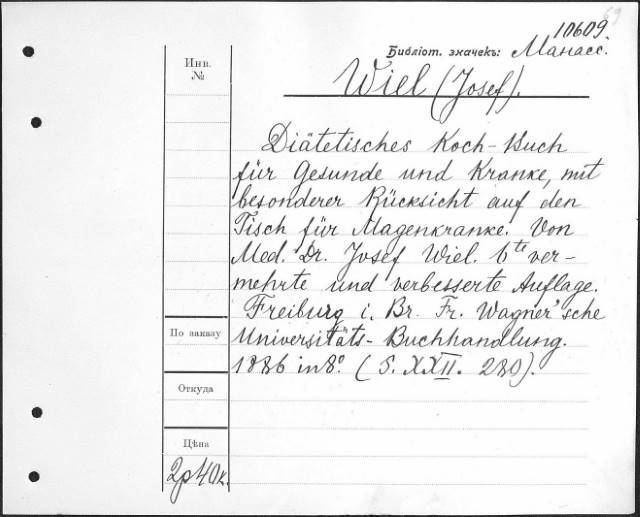 69
10609.
Библіот. значекъ: Манасс.
Инв.
№
Wiel (Josef).
Diätetisches Koch-Buch
für Gesunde und Kranke, mit
besonderer Rücksicht auf den
Tisch für Magenkranke. Von
Med. Dr. Josef Wiel. 6te ver-
mehrte und verbesserte Auflage.
Freiburg i. Br. Fr. Wagner'sche
Universitäts-Buchhandlung.
1886 in 8º. (S. XXII. 280).
По заказу
Откуда
Цѣна
2р40к.